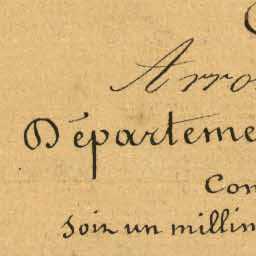 Arro
Départeme
Con
soix un millin